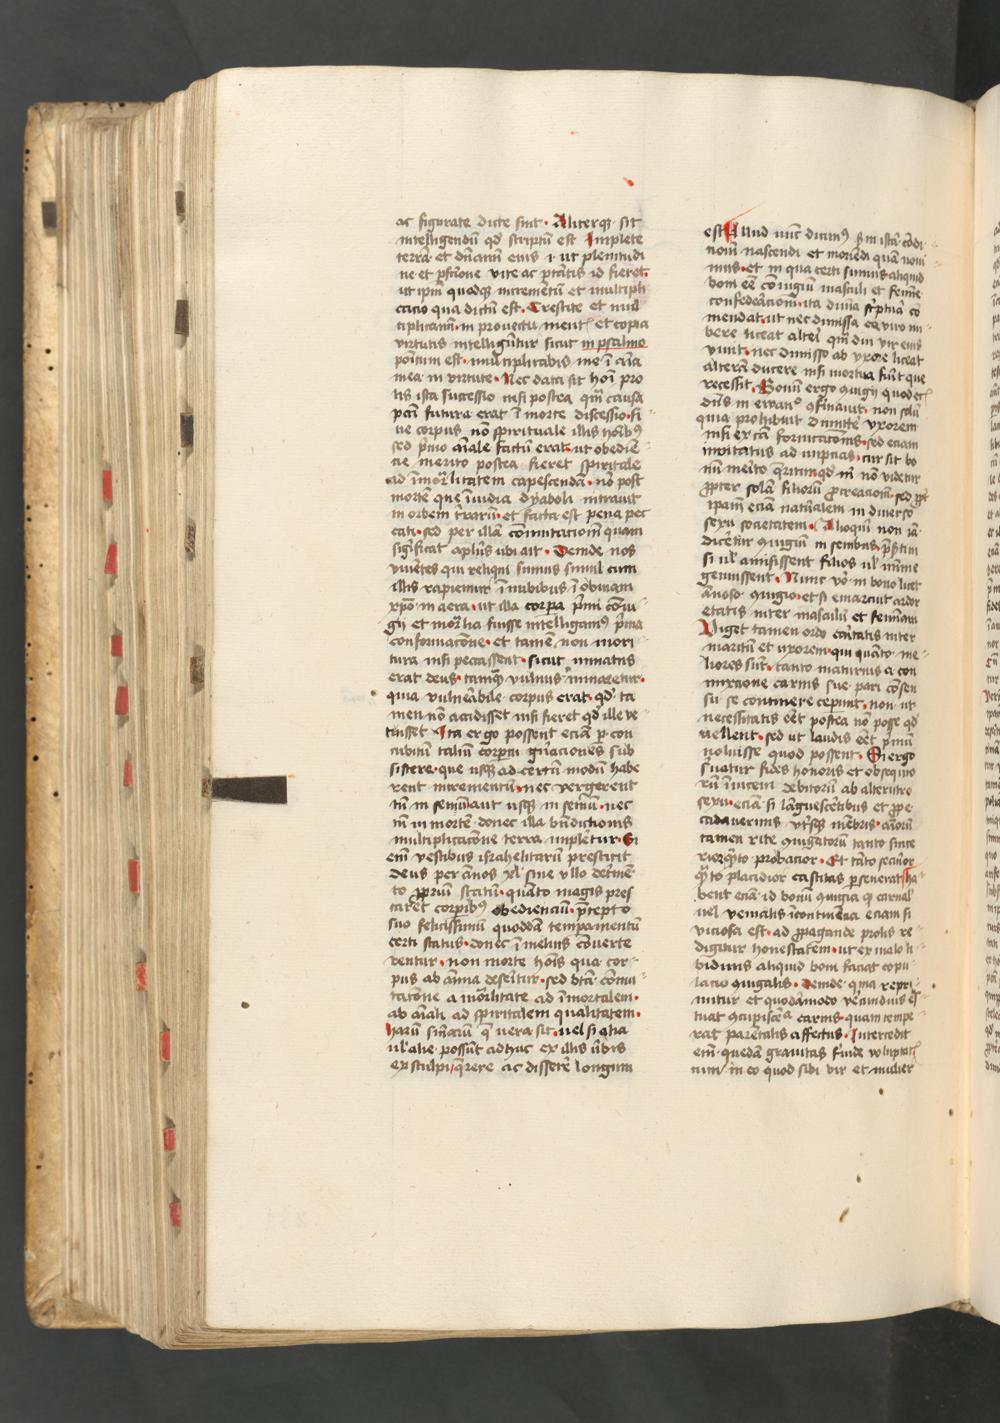 ac figurate dicte sint. Aliterqꝫ sit
intelligendū qd̕ scriptū est Implete
terrā et dn̄amī eius i. ut plenitudi
ne et pfcōne vite ac ptātis id fieret.
ut ip̄m quodqꝫ incremētū et multipli
cacio qua dictū est. Crescite et mul
tiplicamī. in prouectu ment᷒ et copia
virtutis intelligūtur sicut in psalmo
positum est. multiplicabis me ī aīa
mea in virtute. Nec data sit hoī pro
lis ista successio nisi postea qm̄ causa
pctī futura erat ī morte discessio. si
ue corpus nō spirituale illis hoībꝰ
sed p̄mo aīale factū erat. ut obediē
cie merito postea fieret spiritale
ad īmor̄litatem capescendā. nō post
mortē que īuidia dyaboli intrauit
in orbem t̄rarū. et facta est pena pec
cati. sed per illā cōmutacionē quam
significat apl̄us ubi ait. Deinde nos
viuētes qui reliqui sumus simul cum
illis rapiemur ī nubibus ī obuiam
xpo in aera. ut illa corpa p̄mi cōiu
gij et mor̄lia fuisse intelligamꝰ p̄ma
conformacōne. et tamē non mori
tura nisi peccassent. sicut minatus
erat deus. tamqꝫ vulnus minaretur.
quia vulnerabile corpus erat. qd̕ ta
men nō accidisset nisi fieret qd̕ ille ve
tuisset Ita ergo possent eciā p con
cubitū taliū corpm gn̄aciones sub
sistere. que usqꝫ ad certū modū habe
rent incrementū. nec vergerent
tn̄ in seniū. aut usqꝫ in seniū. nec
tn̄ in mortē donec illa bn̄dictionis
multiplicacōne terra impletur. Si
em̄ vestibus israhelitarū prestitit
deus per ānos xl̕ sine vllo det̄mē
to ꝓpriū statū. quāto magis pres
taret corpibꝰ obedienciū p̄cepto
suo felicissimū quoddā tempamentū
certi status. donec ī melius cōuerte
rentur. non morte hoīs qua cor
pus ab aīma deseritur. sed btā cōmu
tacōne a mōrlitate ad īmortalem.
ab aīali ad spiritalem qualitatem.
harū sn̄iarū q̄ vera sit. uel si qua
ul̕ alie possūt adhuc ex illis v̄bis
exsculpi q̄rere ac disserē longum
est Illud nūc dicimꝰ sm istā cōdi
nom̄ nascendi et moriēdi quā noui
mus. et in qua certi sumus aliquid
boni eē cōiugiū masculi et femīe
confederacionī. ita diuīa sc̄ptura cō
mendat. ut nec dimissa ea viro nu
bere liceat alteī qm̄ diu vir eius
viuit. nec dimisso ab vxore liceat
alterā ducere nisi mortua fuīt que
recessit. Bonū ergo ꝯiugij quod et᷒
dn̄s in ewan° ꝯfirmauit. non solū
quia prohibuit dimittē vxorem
nisi ex cā fornicacionis. sed eciam
inuitatus ad nupcias. cur sit bo
nū merito q̄ritur. qd̕ m̄ nō videtur
ꝓpter solā filiorū ꝓcreacionē. sed ꝓpt̄
ipam eciā natuālem in diuerso
sexu societatem. Alioquin non iā
dicētur ꝯiugiū in senibus. p̄s̄tim
si ul̕ amisissent filios ul̕ mīme
genuissent. Nunc vō in bono licet
ānoso ꝯiugio. et si emarcuit ardor
etatis inter masculū et feminam
Viget tamen ordo caritatis inter
maritū et vxorem. qui quāto me
liores sūt. tanto maturius a con
mixtione carnis sue pari cōsen
su se continere ceperunt. non ut
necessitatis eēt postea nō posse qd̕
uellent. sed ut laudis eēt p̄mū
noluisse quod possent. Si ergo
s̄uatur fides honoris et obsequio
rū ī uicem debitorū ab alterutro
sexu. eciā si lāguescētibus et prope
cadauerinis vt̄sqꝫ mēbris. aīorū
tamen rite ꝯiugatorū tanto since
rior q̄to probacior. Et tāto secūor
q̄to placidior castitas ꝑseuerat. ha
bent eciā id bonū ꝯiugia ꝙ carnal᷒
uel venialis īcontinēcia eciam si
viciosa est. ad ꝓpagande prolis re
digitur honestatem. ut ex malo li
bidinis aliquid boni faciat copu
lacio ꝯiugalis. deinde quia repri
mitur et quodāmodo v̄ecundius es
tuat ꝯcupiscēᵃ carnis. quam tempe
rat parētalis affectus. Intercedit
em̄ quedā grauitas f̄uide voluptat᷒
cum in eo quod sibi vir et mulier